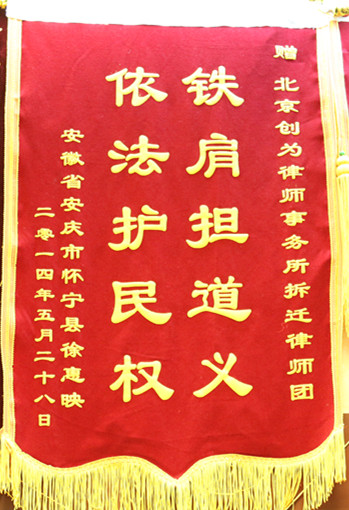 赠 北京创为律师事务所拆迁律师团
铁肩担道义
依法护民权
安徽省安庆市怀宁县徐惠映
二零一四年五月二十八日